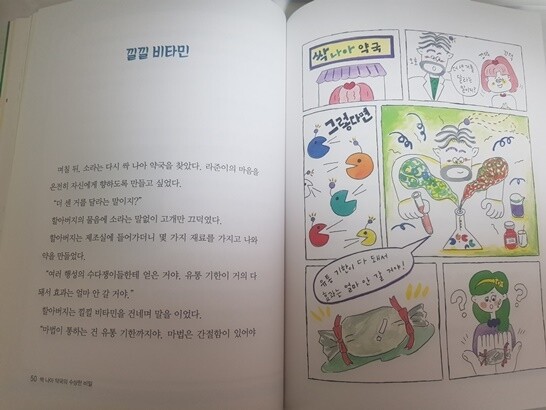 낄낄 비타민
며칠 뒤, 소라는 다시 싹 나아 약국을 찾았다. 라준이의 마음을
온전히 자신에게 향하도록 만들고 싶었다.
"더 센 거를 달라는 말이지?"
할아버지의 물음에 소라는 말없이 고개만 끄덕였다.
할아버지는 제조실에 들어가더니 몇 가지 재료를 가지고 나와
약을 만들었다.
"여러 행성의 수다쟁이들한테 얻은 거야. 유통 기한이 거의 다
돼서 효과는 얼마 안 갈 거야."
할아버지는 낄낄 비타민을 건네며 말을 이었다.
"마법이 통하는 건 유통 기한까지야. 마법은 간절함이 있어야
50 싹 나아 약국의 수상한 비밀
싹 나아 약국
더 센 거를
달라는
말이지?
끄덕
끄덕
그렇다면
유통 기한이 다 돼서
효과는 얼마 안 갈 거야!
? ? ?